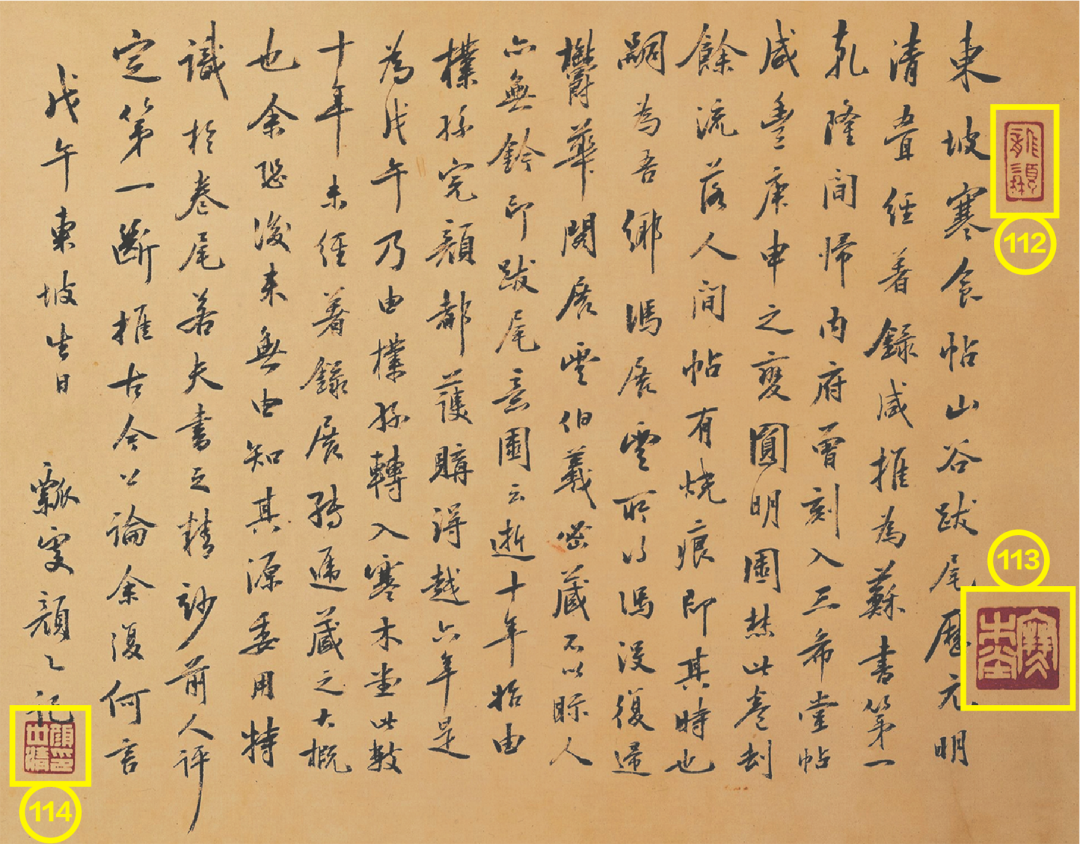 東坡寒食帖山谷跋尾歷元明
清疊經著錄咸推為蘇書第一
乾隆間歸內府曾刻入三希堂帖
咸豐庚申之變圓明園焚此卷刦
餘流落人間帖有燒痕即其時也
嗣為吾鄉馮展雲所得馮沒復還
鬱華閣展雲伯羲密藏不以眎人
亦無鈐印跋尾意園云逝十年始由
樸孫完顏都護購得越六年是
為戊午乃由樸孫轉入寒木堂此數
十年未經著錄展轉遞藏之大概
也余恐後來無由知其源委用特
識於卷尾若夫書之精妙前人評
定第一斷推古今公論余復何言
戊午東坡生日 瓢叟顏記
112
113
寒木堂
114